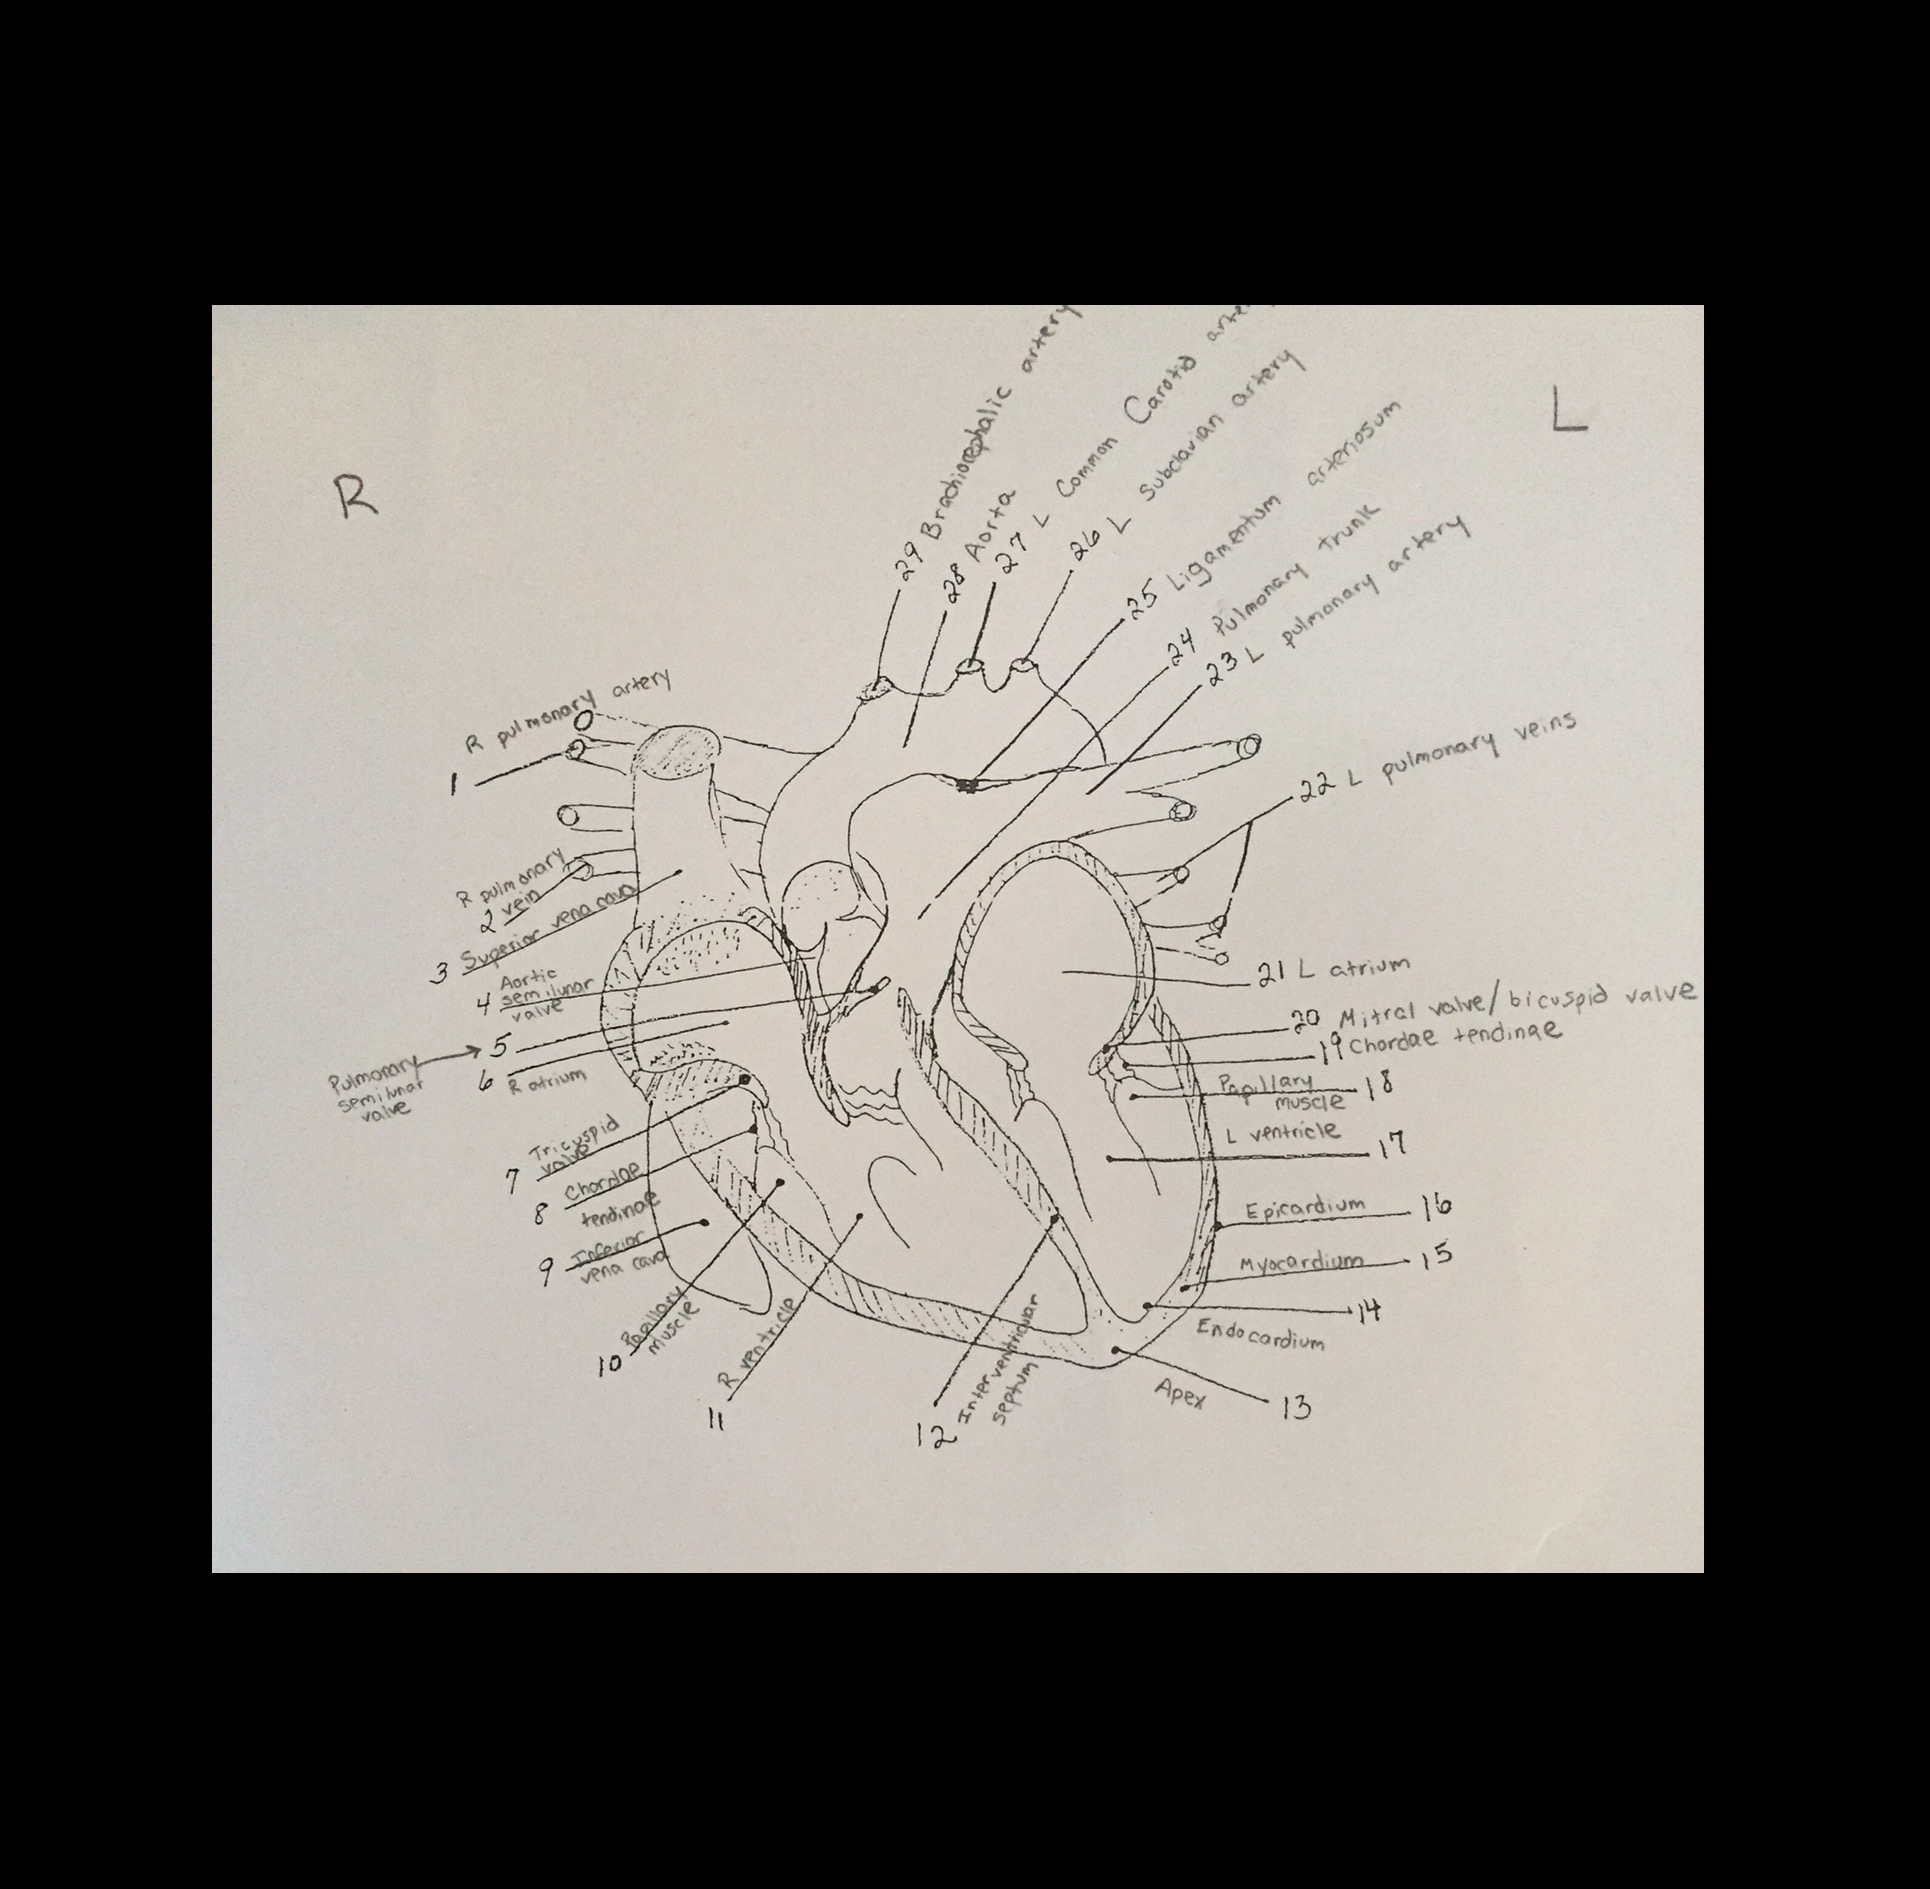 R
L
29 Brachiocephalic artery
28 Aorta
27 L Common Carotid
26 L Subclavian artery
25 Ligamentum arteriosum
24 Pulmonary trunk
23 L pulmonary artery
22 L pulmonary veins
21 L atrium
20 Mitral valve/bicuspid valve
19 Chordae tendinae
Papillary
muscle
18
L ventricle
17
Epicardium 16
Myocardium 15
14
Endocardium
Apex 13
12 Interventricular
septum
R ventricle
11
10 Papillary
muscle
9 Inferior
vena cava
8 Chordae
tendinae
7 Tricuspid
valve
6 R atrium
Pulmonary
semilunar
valve
5
4 Aortic
semilunar
valve
3 Superior vena cava
R pulmonary
2 vein
R pulmonary artery
1